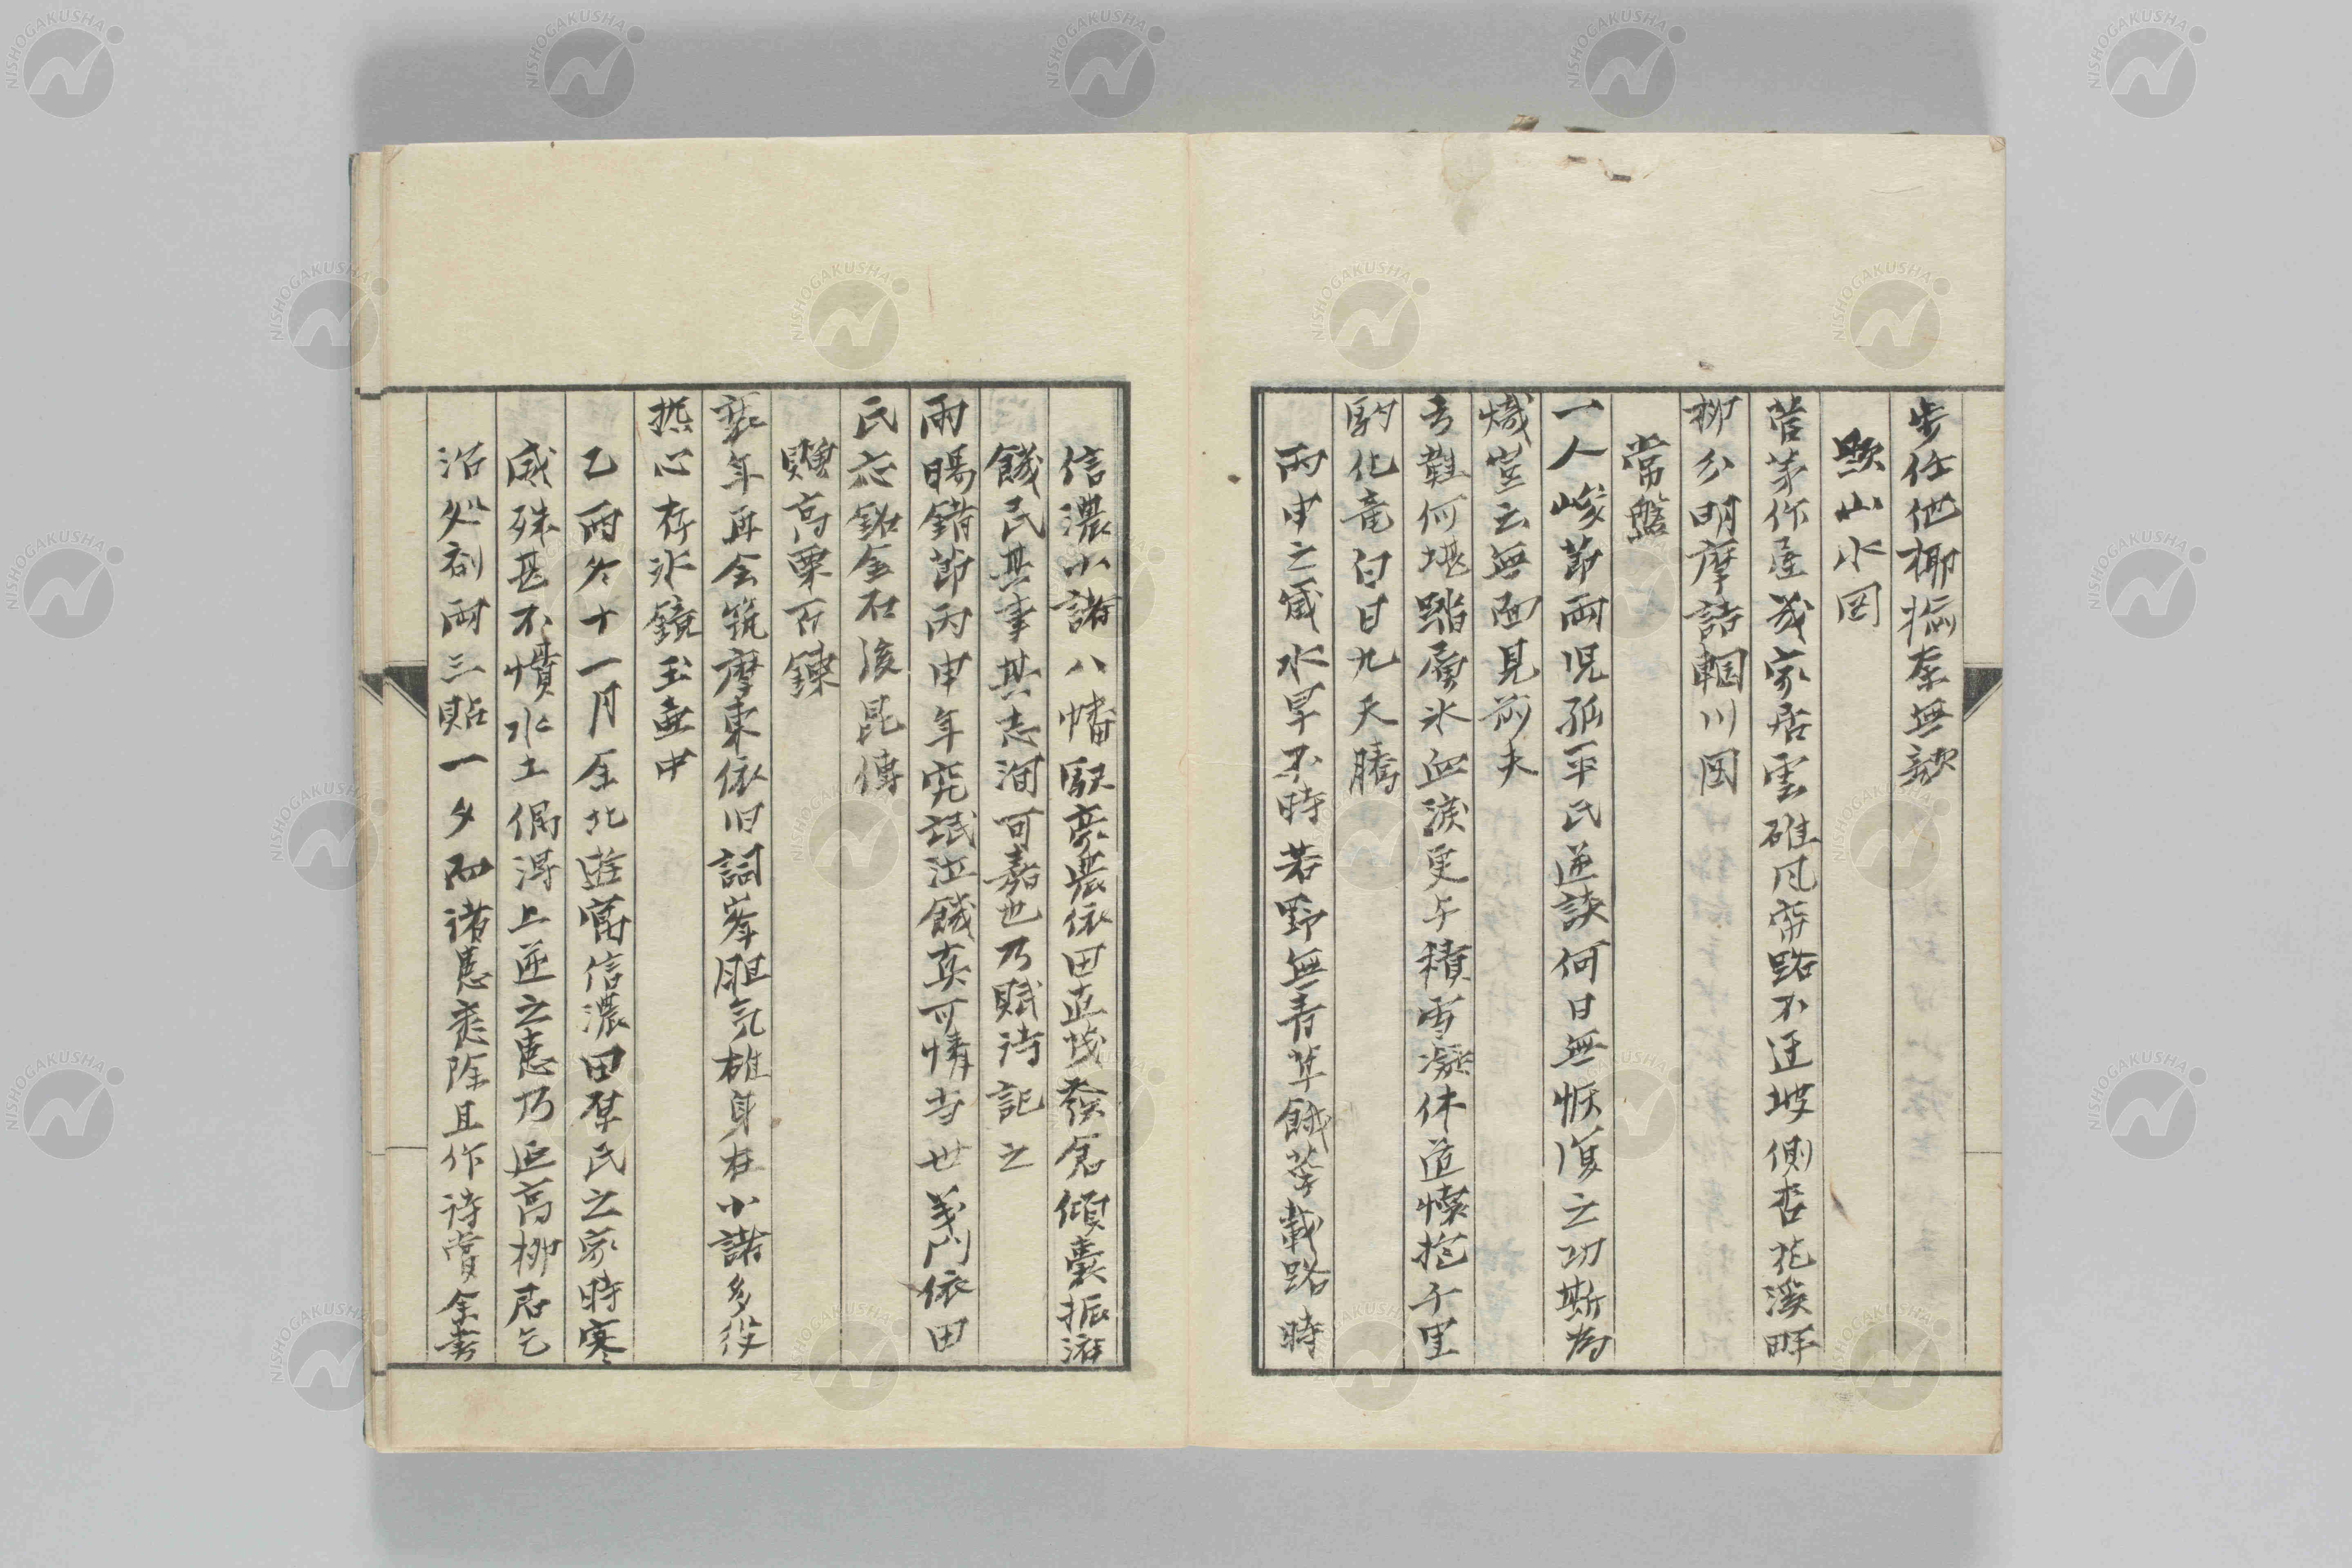 歩任他椰㯽奈無諒
題山水図
苫茅作屋幾家居雲碓凡帘路不迂坡側杏花溪畔
柳分明摩詰輞川図
常盤
一人峻節両児孤平氏逆謀何日無恢復之功斯為
熾豈云無面見前夫
弓鞋何堪踏層氷血涙更与積雪凝休道懐抱千里
駒化竜白日九天騰
丙申之歳水旱不時若野無青草餓莩載路時
信濃小諸八幡駅豪農依田正茂発倉傾嚢振済
饑民其事其志洵可嘉也乃賦詩記之
雨暘錯節丙申年究氓泣饑真可憐寺世義門依田
氏応銘金石後昆傳
贈高栗百錬
数年再会筑摩東依旧詞峯胆気雄身在小諸多役
熱心存氷鏡玉壺中
乙酉冬十一月余北遊寓信濃田原氏之家時寒
威殊甚不慣水土偶得上逆之患乃延高柳君乞
治処剤両三貼一夕而諸患悉除且作詩賞余書